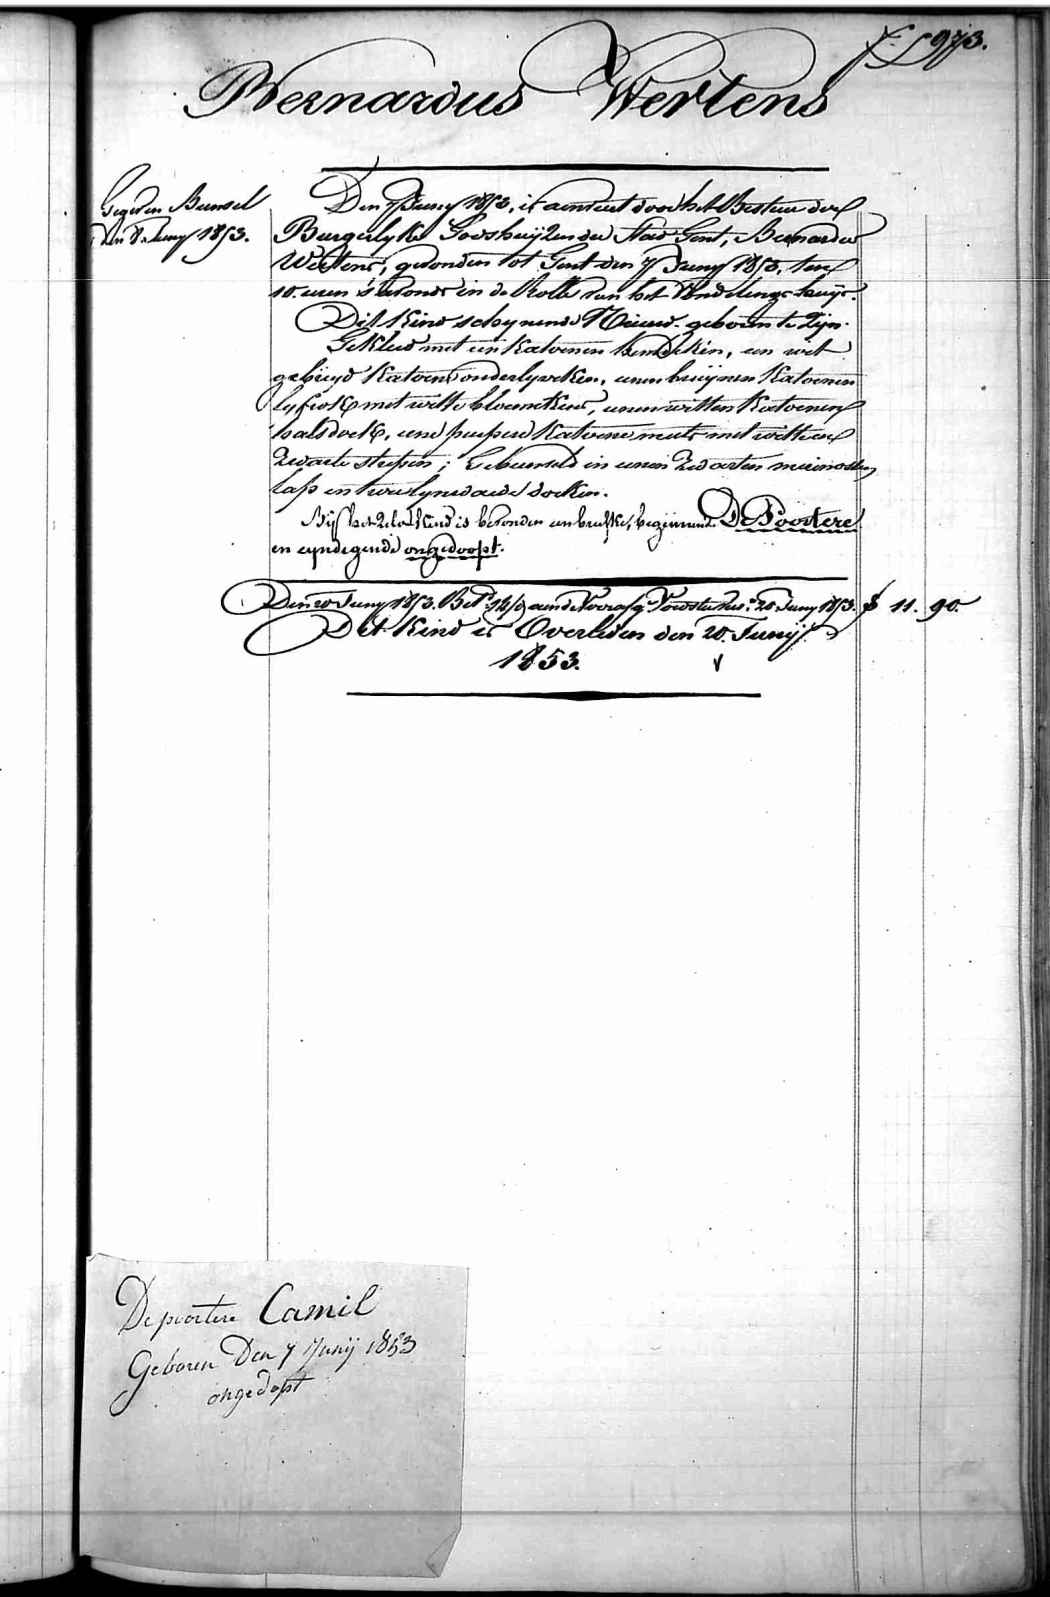 f° 973.
Bernardus Wertens
Gegeven Bunsel
den 8 Juny 1853.
Den 7 Juny 1853, is aenveert door het Bestuer der
Burgerlyke Godshuijzen der Stad Gent, Bernardus
Wertens, gevonden tot Gent den 7 Juny 1853, ten
10 uren 's avonds in de Rolle van het Vondelingenhuijs.
Dit Kind schynende Nieuw-geboren te zyn.
Gekleed met een Katoenen hemdeken, een wit
gebreyd Katoen onderlyveken, eenen bruijnen Katoenen
lyfrok met witte bloemekens, eenen witten Katoenen
halsdoek, eene purpere Katoene muts met witte en
zwarte strepen; Gebunseld in eenen zwarten merinossen
lap en twee lynwaede doeken.
Bij het zelve Kind is bevonden een briefke, beginnende De Poortere
en eyndegende ongedoopt.
Den 20 Juny 1853. Bet. aen de 20 Juny 1853. f 11. 90.
Dit Kind is Overleden den 20. Junij
1853.
Depoortere Camil
Geboren Den 7 Junij 1853
ongedopt